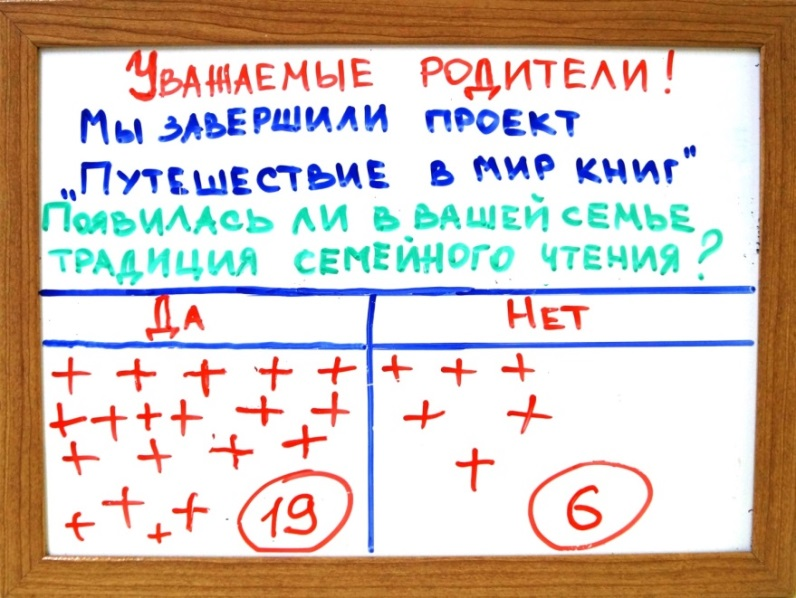 Уважаемые родители!
Мы завершили проект
„Путешествие в мир книг"
Появилась ли в вашей семье
традиция семейного чтения?
Да Нет
+ + + + + + + +
+ + + + + + + +
+ + + + +
+ + + +
19 6